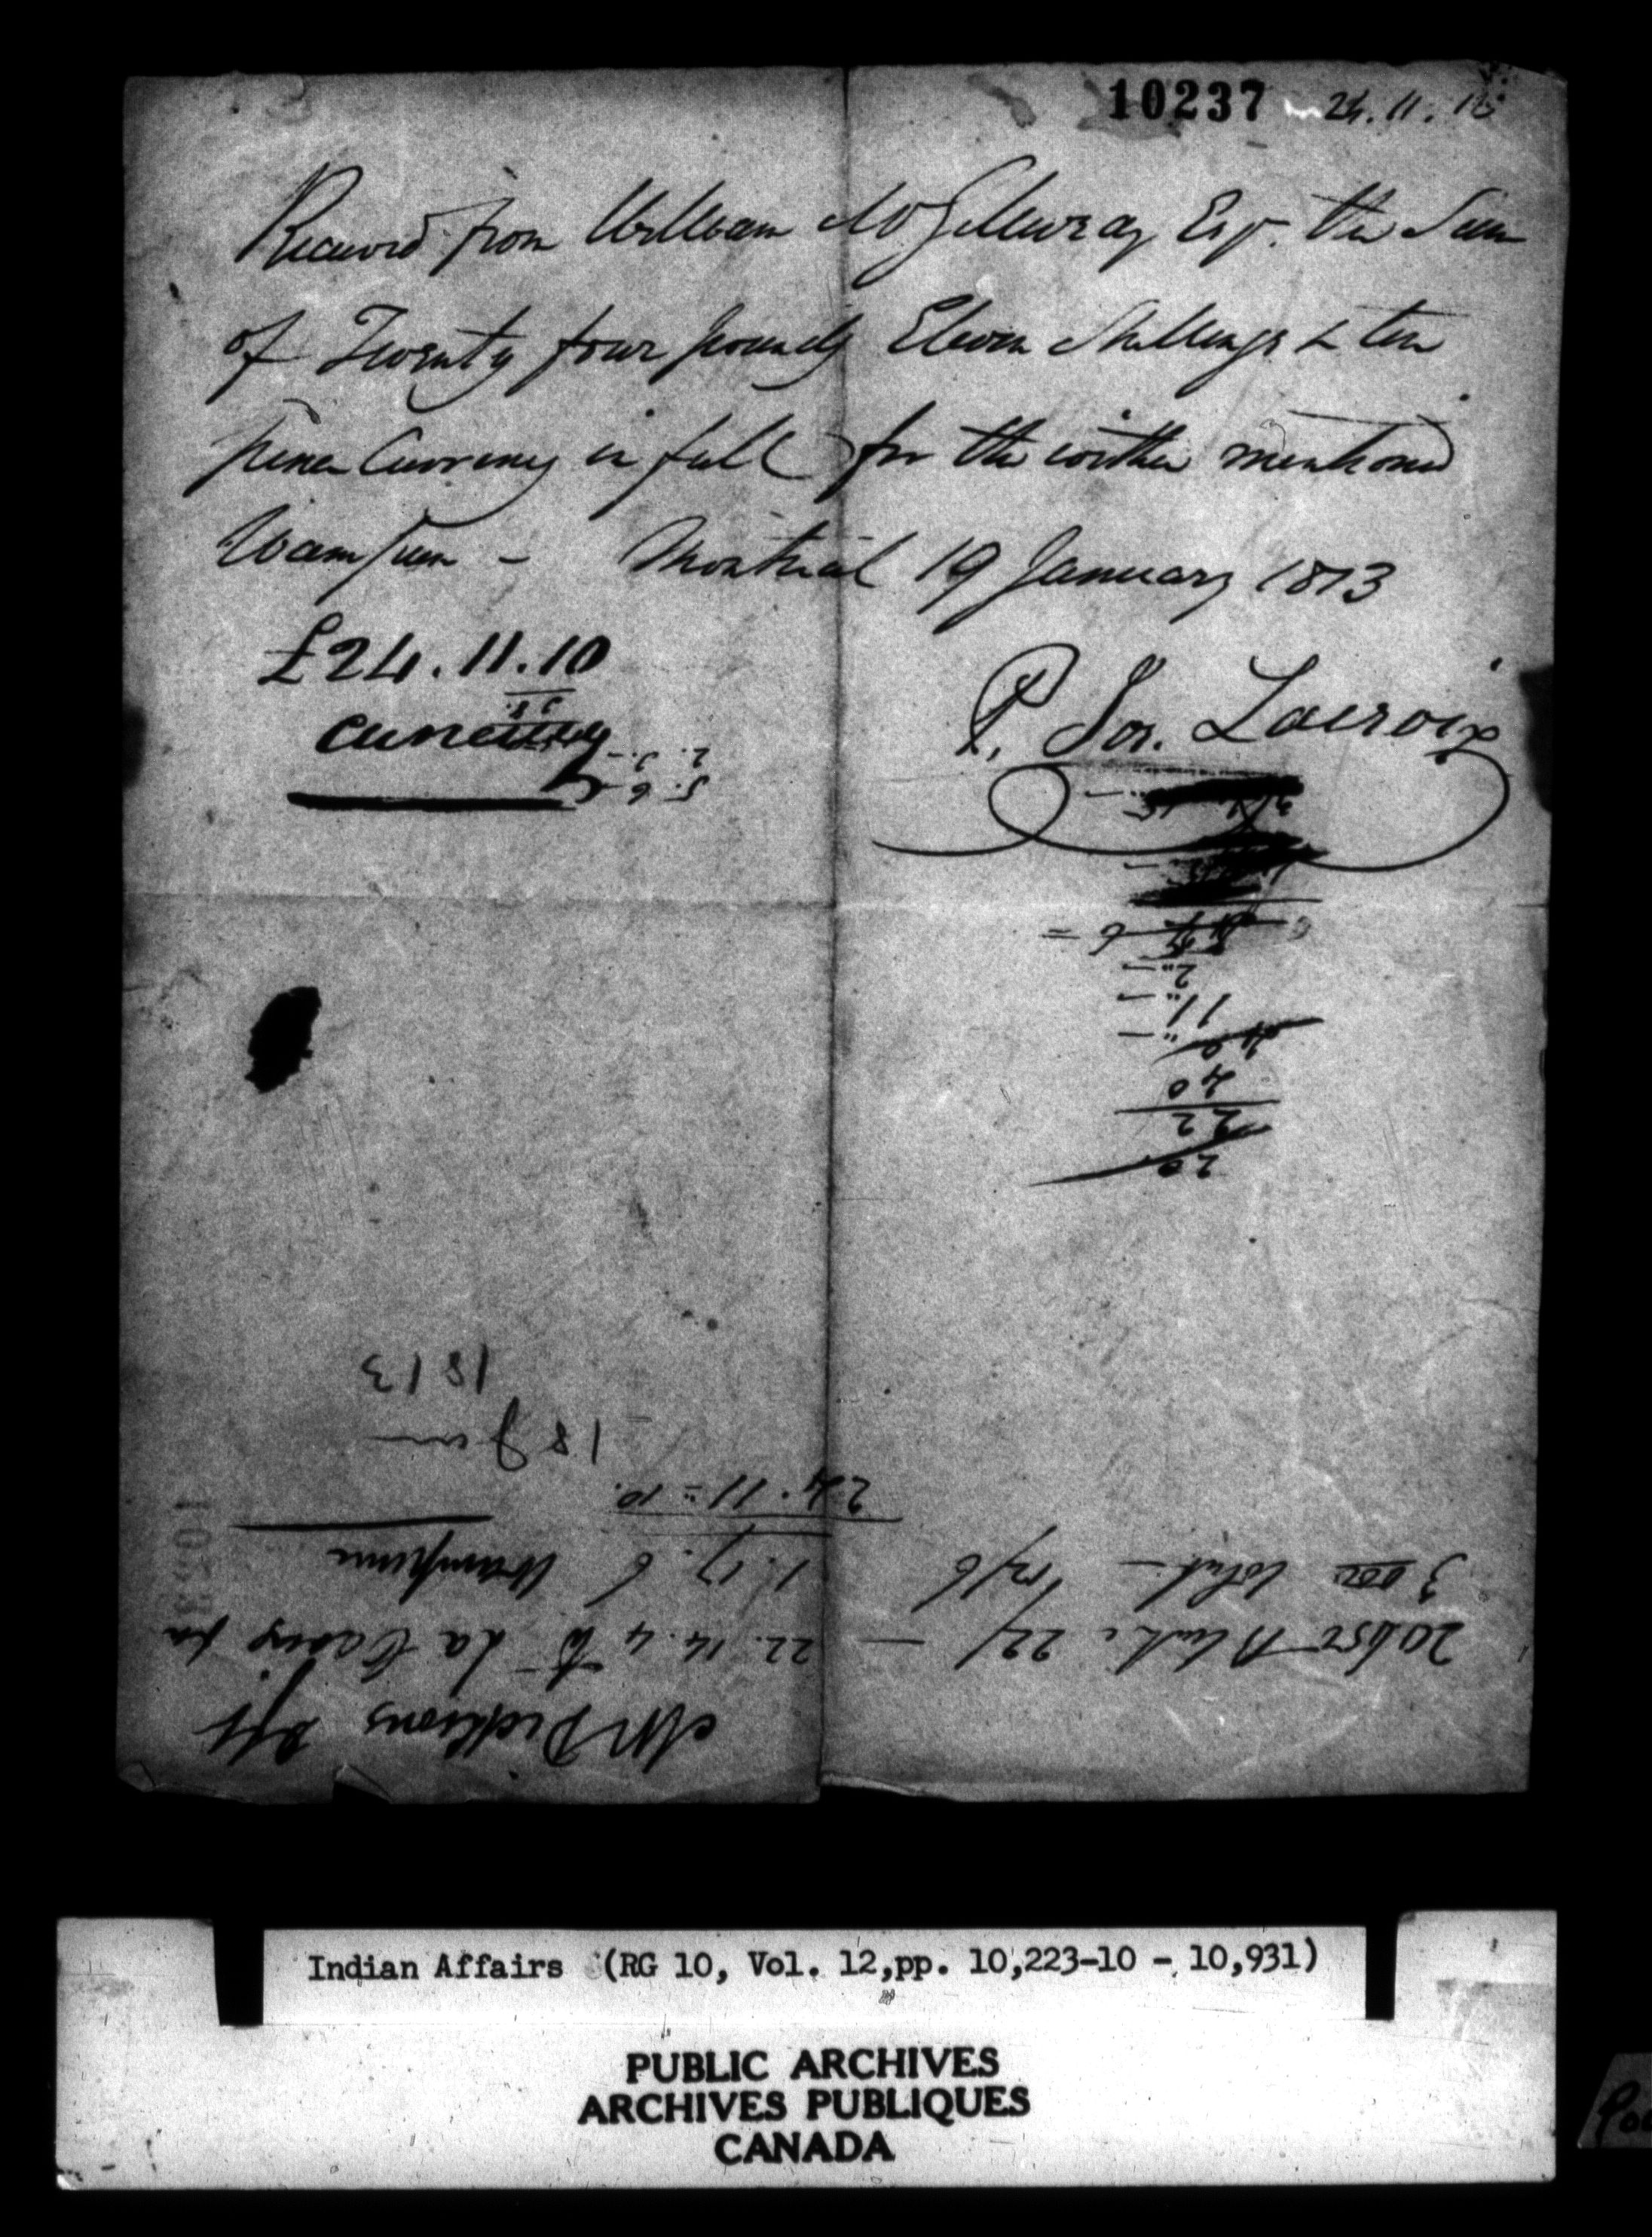 10237 24.11.10
Received from William McGillivray Esqr. the Sum
of Twenty four pounds Eleven Shillings & ten
pence Currency in full for the within mentioned
Wampum - Montreal 19 January 1813
£24.11.10
currency
P. Jos. Lacroix
2
11
40
22
20
Mr Dicksons
20 Black 22/ — 22.14.4
3 White - 12/6 1.17.6 Wampum
24.11.10.
18 Jan
1813
Indian Affairs (RG 10, Vol. 12,pp. 10,223-10 - 10,931)
PUBLIC ARCHIVES
ARCHIVES PUBLIQUES
CANADA